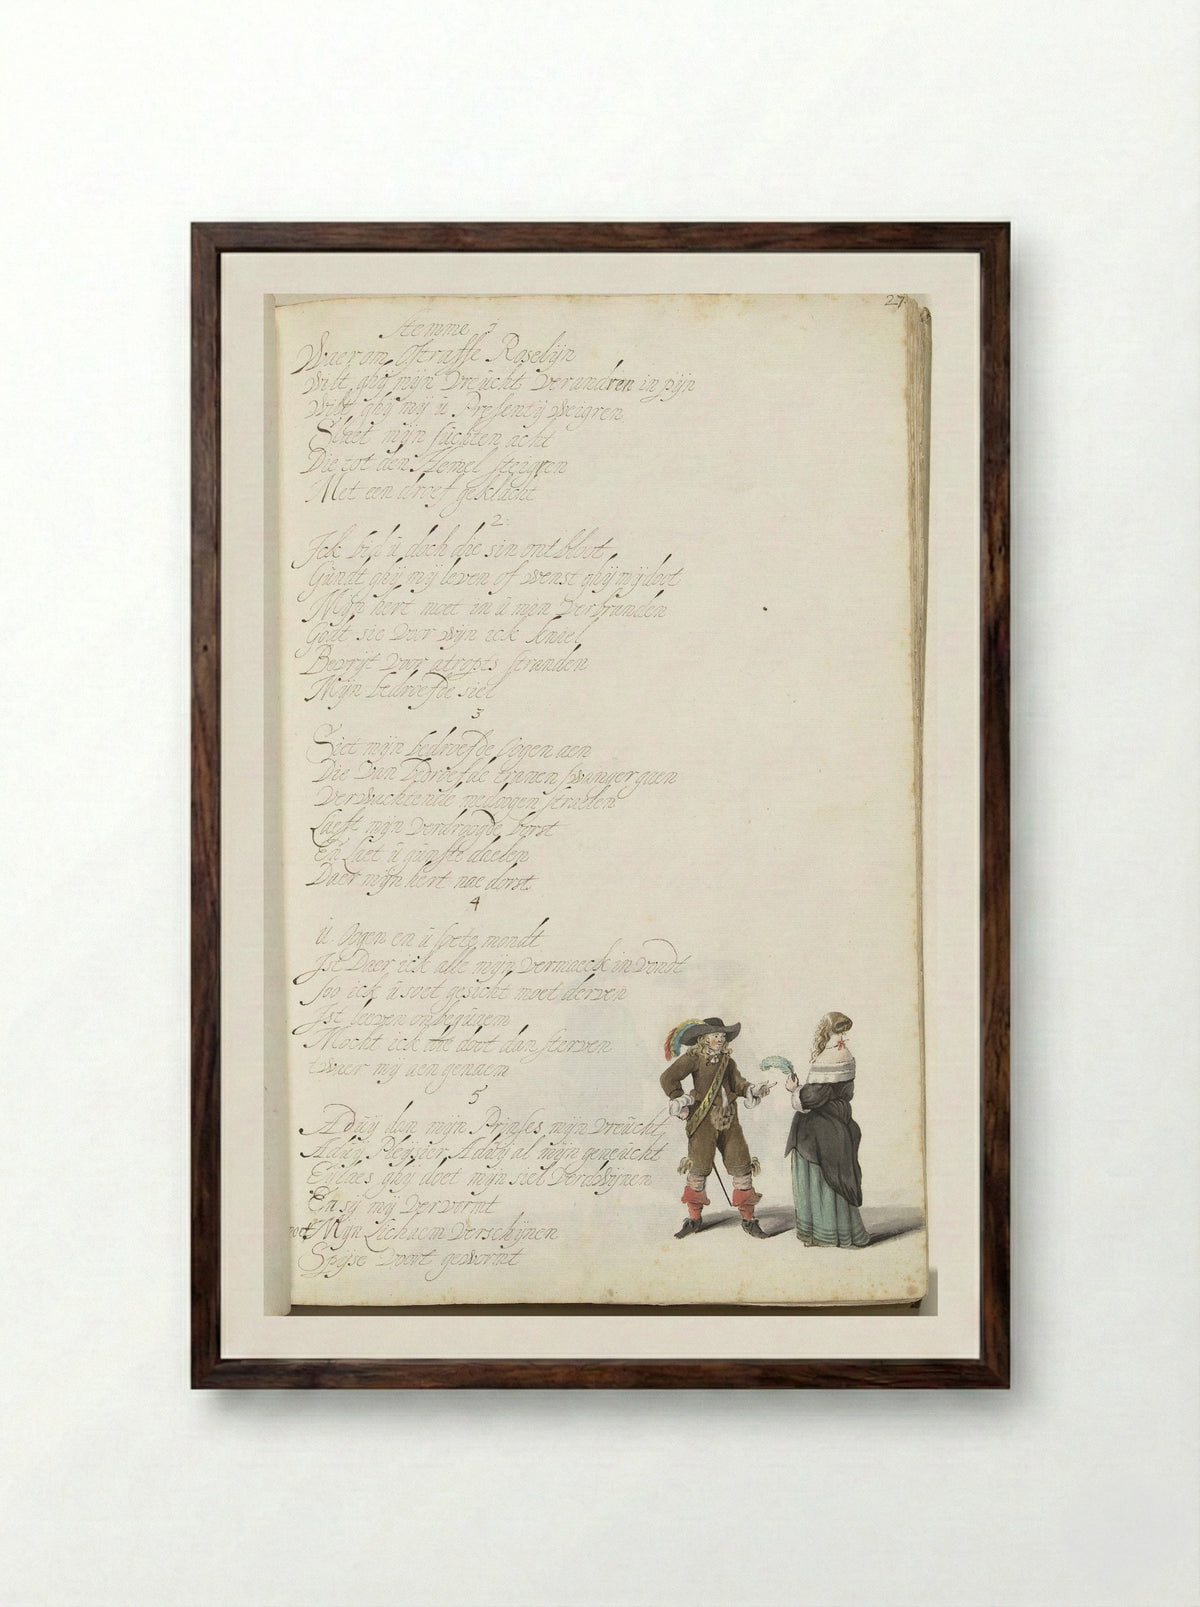 27
Stemme 1
Waerom Straffe Roselijn
Wilt ghij mijn vreucht verandren in pijn
Wilt ghij mij ü Presentij weigren
Slaet mijn süchten acht
Die tot den Hemel steigren
Met een droef geklacht
2
Ick bid ü doch die sin ontbloot
Gundt ghij mij leven of wenst ghij mij doot
Mijn hert moet in ü min verbranden
Godt sie voor wijn ick kniel
Bevrijt voor atropos stranden
Mijn bedroefde siel
3
Siet mijn bedroefde oogen aen
Die van bedroefde tranen swanger gaen
Verwachtende medoogen straelen
Laeft mijn verdroogde borst
En Laet ü günste daelen
Daer mijn hert nae dorst
4
ü oogen en ü soete mondt
Ist Daer ick alle mijn vermaeck in vondt
Soo ick ü soet gesicht moet derven
Ist leeven onbequaem
Mocht ick die doot dan sterven
twaer mij aengenaem
5
Adüij dan mijn Prinses mijn vreücht
Adüij Pleijsier Adüij al mijn geneücht
Eijlaes ghij doet mijn siel verdwijnen
En sij mij vervormt
moet Mijn Lichaem verschijnen
Spijse voort gewormt